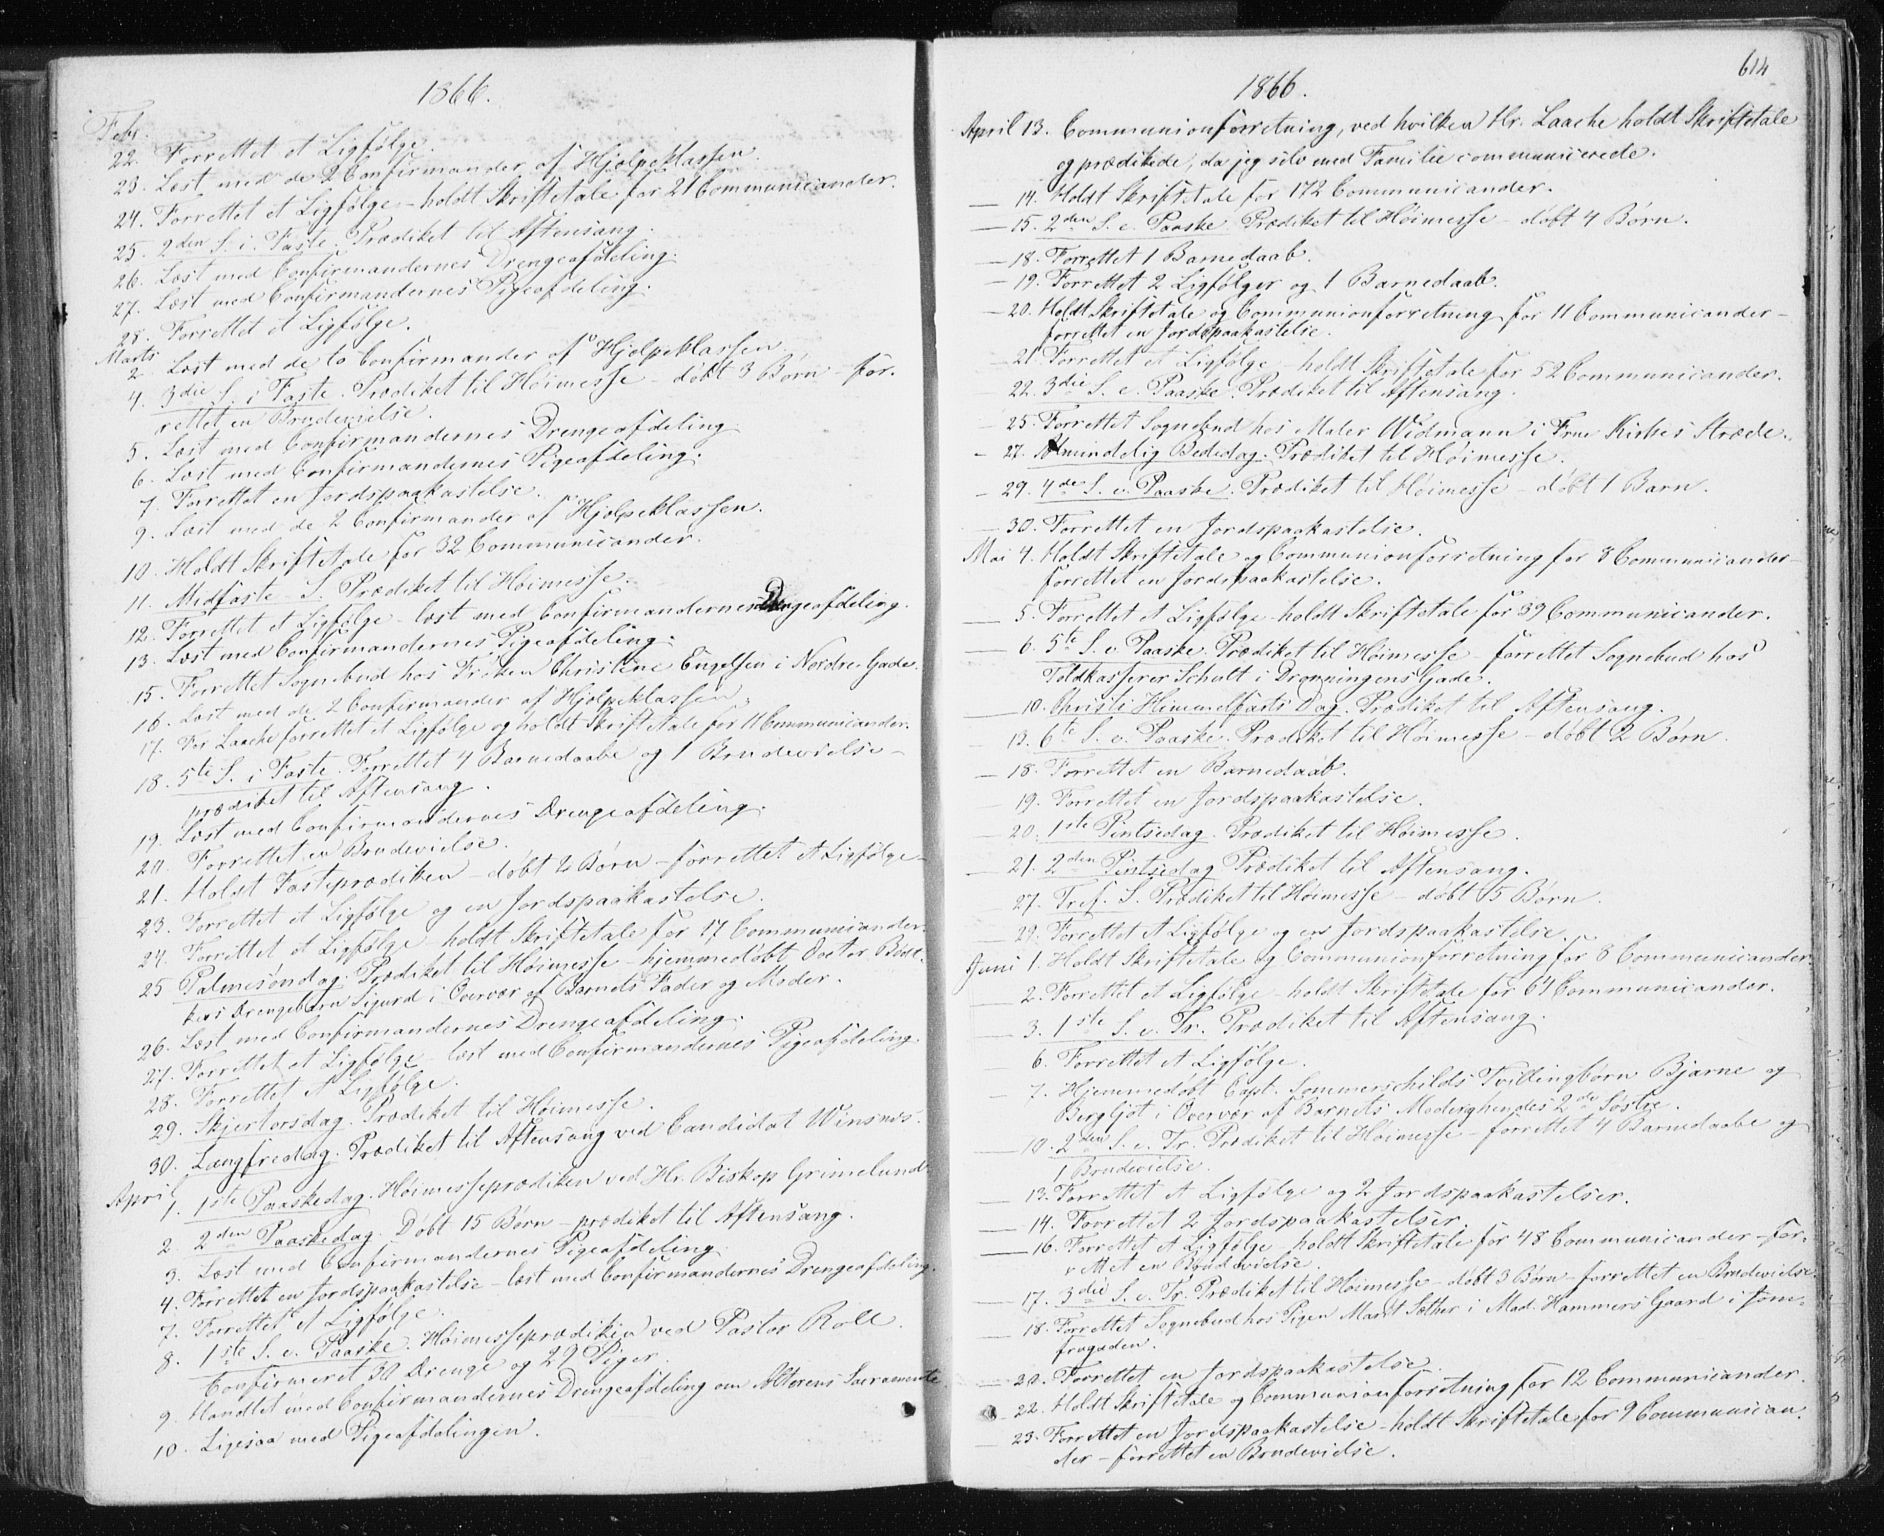 1866.
Febr.
22. Forrettet et Ligfølge.
23. Læst med de 2 Confirmander af Hjelpeklassen.
24. Forrettet et Ligfølge - holdt Skriftetale for 21 Communicander.
25. 2den S. i Faste. Prædiket til Aftensang.
26. Læst med Confirmandernes Drengeafdeling.
27. Læst med Confirmandernes Pigeafdeling.
28. Forrettet et Ligfølge.
Marts
2. Læst med de to Confirmander af Hjelpeklassen.
4. 3die S. i Faste. Prædiket til Høimesse - døbt 3 Børn - for-
rettet en Brudevielse.
5. Læst med Confirmandernes Drengeafdeling
6. Læst med Confirmandernes Pigeafdeling.
7. Forrettet en Jordspaakastelse.
9. Læst med de 2 Confirmander af Hjelpeklassen.
10. Holdt Skriftetale for 32 Communicander.
11. Midfaste S. Prædiket til Høimesse.
12. Forrettet et Ligfølge - læst med Confirmandernes Drengeafdeling.
13. Læst med Confirmandernes Pigeafdeling.
15. Forrettet Sognebud hos Frøken Christine Engelsen i Nordre Gade.
16. Læst med de 2 Confirmander af Hjelpeklassen.
17. Hr Laache forrettet et Ligfølge og holdt Skriftetale for 11 Communicander.
18. 5te S. i Faste. Forrettet 4 Barnedaabe og 1 Brudevielse -
prædiket til Aftensang.
19. Læst med Confirmandernes Drengeafdeling.
20. Forrettet en Brudevielse.
21. Holdt Fasteprædiken - døbt 2 Børn - forrettet et Ligfølge -
23. Forrettet et Ligfølge og en Jordspaakastelse.
24. Forrettet et Ligfølge - holdt Skriftetale for 17 Communicander.
25 Palmesøndag. Prædiket til Høimesse - hjemmedøbt Doctor
Drengebarn Sigurd i Overvær af Barnets Fader og Moder.
26. Læst med Confirmandernes Drengeafdeling.
27. Forrettet et Ligfølge - læst med Confirmandernes Pigeafdeling
28. Forrettet et Ligfølge.
29. Skjertorsdag. Prædiket til Høimesse.
30. Langfredag. Prædiket til Aftensang ved Candidat Winsnes.
April
1. 1ste Paaskedag. Høimesseprædiken ved Hr. Biskop Grimelund
2. 2den Paaskedag. Døbt 15 Børn - prædiket til Aftensang.
3. Læst med Confirmandernes Pigeafdeling.
4. Forrettet en Jordspaakastelse - læst med Confirmandernes Drengeafdeling.
7. Forrettet et Ligfølge.
8. 1ste S. e. Paaske. Høimesseprædiken ved Pastor Roll.
Confirmeret 30 Drenge og 29 Piger.
9. Handlet med Confirmandernes Drengeafdeling om Alterens Sacramente.
10. Ligesaa med Pigeafdelingen.
614
1866.
April 13. Communionforretning, ved hvilken Hr. Laache holdt Skriftetale
og prædikede, da jeg selv med Familie communicerede.
— 14. Holdt Skriftetale for 172 Communicander.
— 15. 2den S. e. Paaske. Prædiket til Høimesse - døbt 4 Børn.
— 18. Forrettet 1 Barnedaab.
— 19. Forrettet 2 Ligfølger og 1 Barnedaab.
— 20. Holdt Skriftetale og Communionforretning for 11 Communicander -
forrettet en Jordspaakastelse.
— 21. Forrettet et Ligfølge - holdt Skriftetale for 52 Communicander.
— 22. 3die S. e. Paaske. Prædiket til Aftensang.
— 25. Forrettet Sognebud hos Maler Widmann i Frue Kirkes Stræde.
— 27. Almindelig Bededag. Prædiket til Høimesse.
— 29. 4de S. e. Paaske. Prædiket til Høimesse - døbt 1 Barn.
— 30. Forrettet en Jordspaakastelse.
Mai 4. Holdt Skriftetale og Communionforretning for 8 Communicander -
forrettet en Jordspaakastelse.
— 5. Forrettet et Ligfølge - holdt Skriftetale for 39 Communicander.
— 6. 5te S. e. Paaske. Prædiket til Høimesse - forrettet Sognebud hos
Toldkasserer Schult i Dronningens Gade.
— 10. Christi Himmelfarts Dag. Prædiket til Aftensang.
— 13. 6te S. e. Paaske. Prædiket til Høimesse - døbt 2 Børn.
— 18. Forrettet en Barnedaab.
— 19. Forrettet en Jordspaakastelse.
— 20. 1ste Pintsedag. Prædiket til Høimesse.
— 21. 2den Pintsedag Prædiket til Aftensang.
— 27. Tref. S. Prædiket til Høimesse - døbt 5 Børn.
— 29. Forrettet et Ligfølge og en Jordspaakastelse.
Juni 1. Holdt Skriftetale og Communionforretning for 8 Communicander.
— 2. Forrettet et Ligfølge - holdt Skriftetale for 61 Communicander.
— 3. 1ste S. e. Tr. Prædiket til Aftensang.
— 6. Forrettet et Ligfølge.
— 7. Hjemmedøbt Capt. Sommerschilds Tvillingbørn Bjarne og
Bergljot i Overvær af Barnets Moder 2de Søstre.
— 10. 2den S. e. Tr. Prædiket til Høimesse - forrettet 4 Barnedaabe og
1 Brudevielse.
— 13. Forrettet et Ligfølge og 2 Jordspaakastelser.
— 14. Forrettet 2 Jordspaakastelser.
— 16. Forrettet et Ligfølge - holdt Skriftetale for 48 Communicander - for-
rettet en Brudevielse.
— 17. 3die S. e. Tr. Prædiket til Høimesse - døbt 3 Børn - forrettet en Brudevielse.
— 18. Forrettet Sognebud hos Pigen Marit Sæther i Mad. Hammers Gaard i Jom-
frugaden.
— 20. Forrettet en Jordspaakastelse.
— 22. Holdt Skriftetale og Communionforretning for 12 Communicander.
— 23. Forrettet en Jordspaakastelse - holdt Skriftetale for 9 Communican-
der - forrettet en Brudevielse.